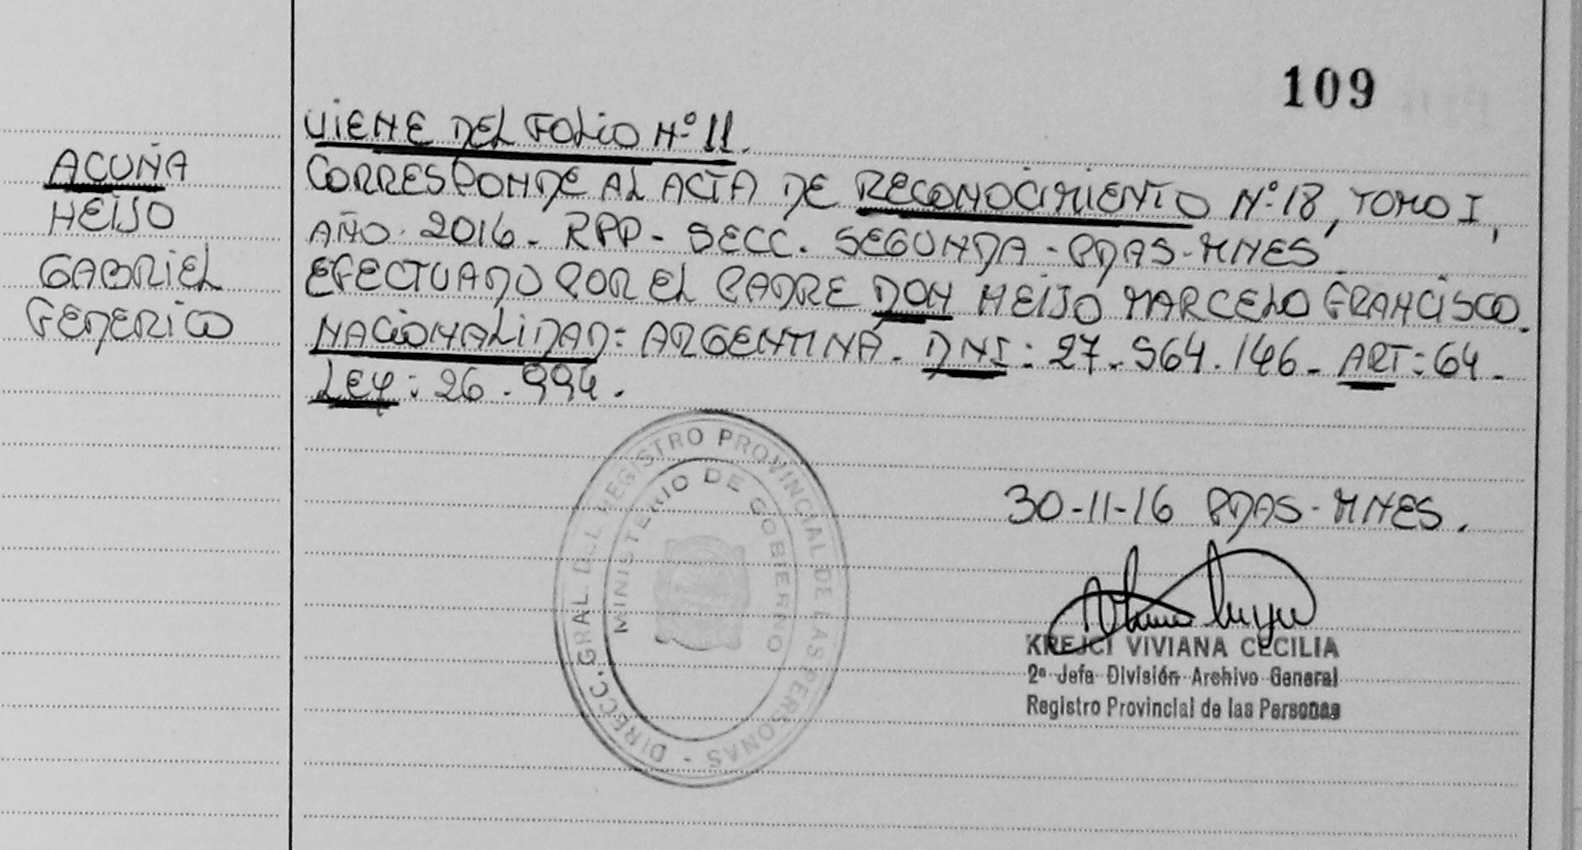 109
VIENE DEL FOLIO Nº 11.
ACUÑA
HEIJO
GABRIEL
FEDERICO
CORRESPONDE AL ACTA DE RECONOCIMIENTO Nº 18, TOMO I,
AÑO 2016 - RPP - SECC. SEGUNDA - PDAS - MNES
EFECTUADO POR EL PADRE DON HEIJO MARCELO FRANCISCO.
NACIONALIDAD: ARGENTINA. DNI: 27.564.146 - ART: 64 -
LEY: 26.994.
DIRECC. GRAL. DEL REGISTRO PROVINCIAL DE LAS PERSONAS -
MINISTERIO DE GOBIERNO
30-11-16 PDAS - MNES.
KREJCI VIVIANA CECILIA
2ª Jefa División Archivo General
Registro Provincial de las Personas